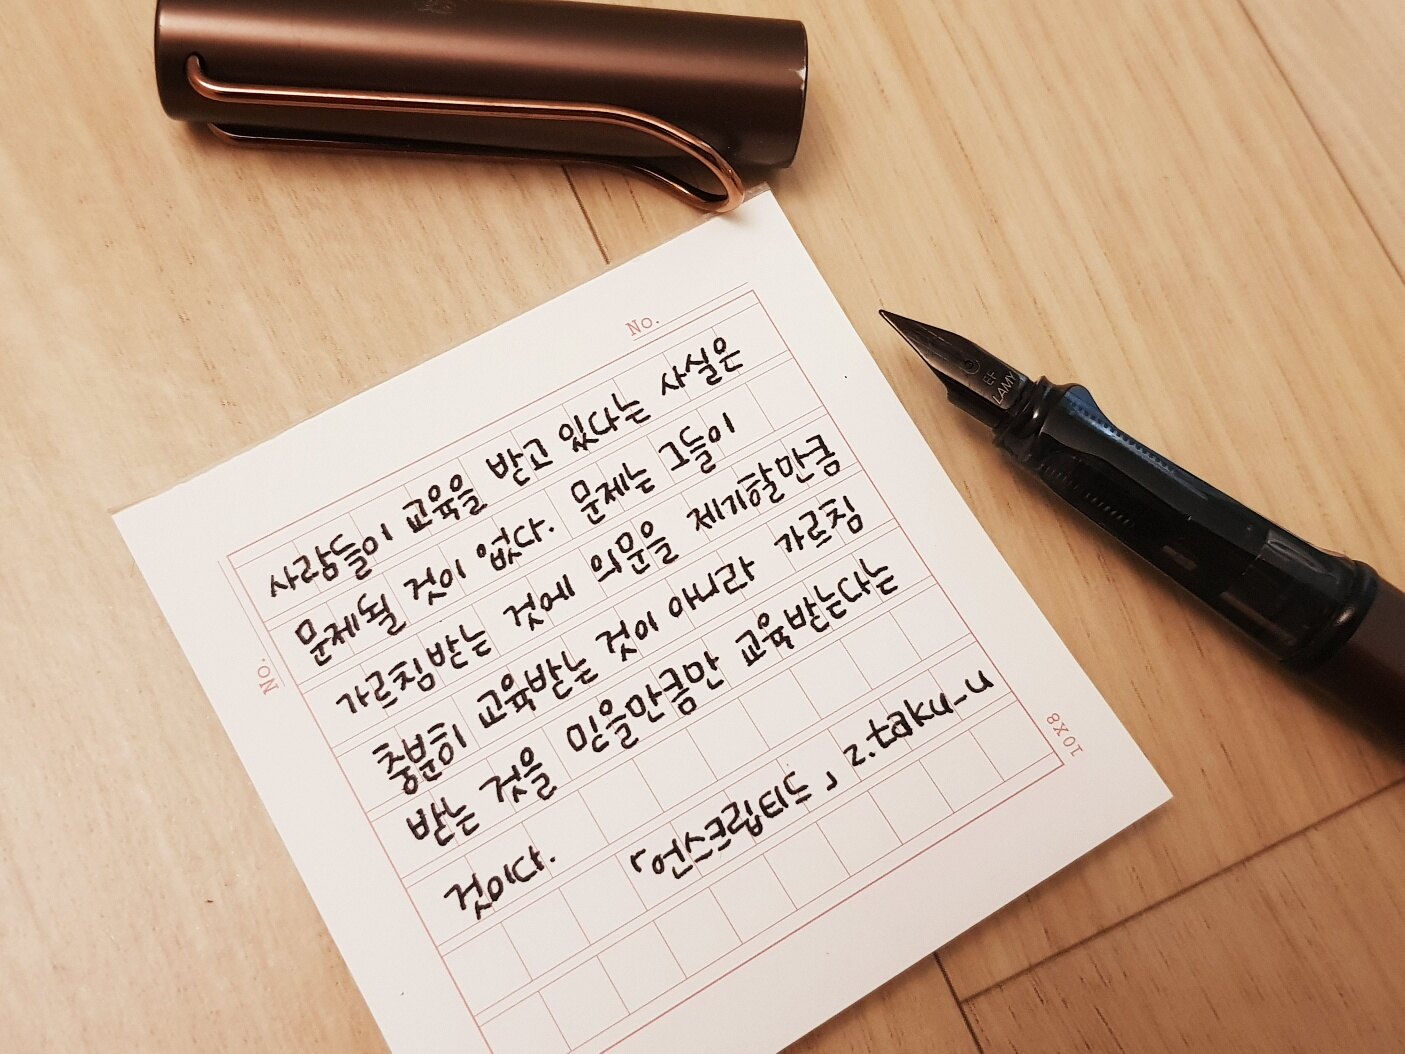 No.
사람들이 교육을 받고 있다는 사실은
문제될 것이 없다. 문제는 그들이
가르침받는 것에 의문을 제기할만큼
충분히 교육받는 것이 아니라 가르침
받는 것을 믿을만큼만 교육받는다는
것이다.
「언스크립티드」 z.taku-u
No.
10X8
EF
LAMY